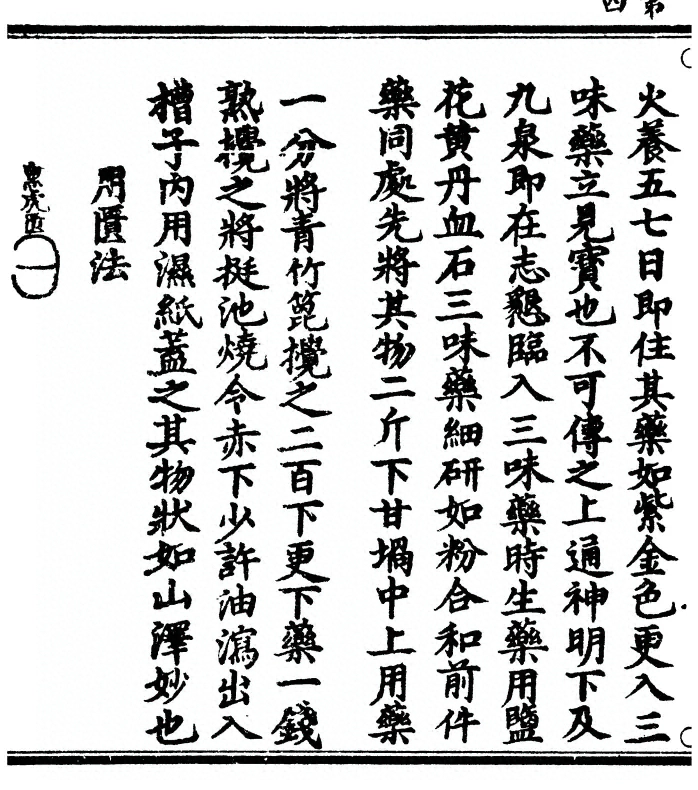 火養五七日即住其藥如紫金色更入三
味藥立見寶也不可傳之上通神明下及
九泉即在志懇臨入三味藥時生藥用鹽
花黄丹血石三味藥細研如粉合和前件
藥同處先將其物二斤下甘堝中上用藥
一分將青竹篦攪之二百下更下藥一錢
熟攪之將挺池燒令赤下少許油瀉出入
槽子內用濕紙蓋之其物狀如山澤妙也
用匱法